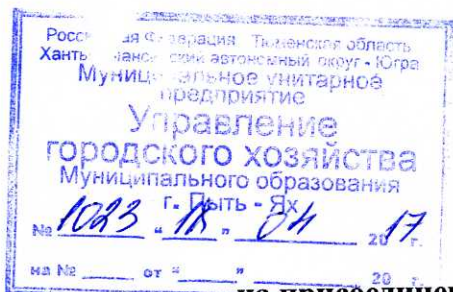 Российская Федерация Тюменская область
Ханты-Мансийский автономный округ - Югра
Муниципальное унитарное
предприятие
Управление
городского хозяйства
Муниципального образования
г. Пыть - Ях
№ 1023 " 18 " 04 2017 г.
на № ____ от " ____ " ____ 20 __ г.
на присоединен